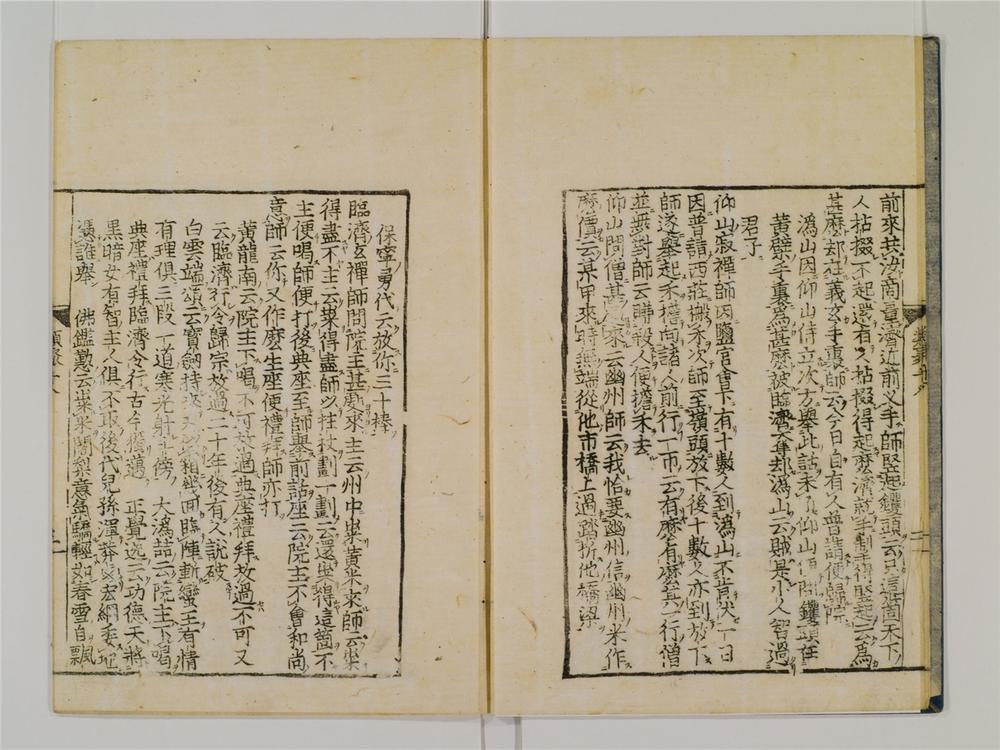 前來共汝商量濟近前叉手師竪起钁頭云只這箇天下
人拈掇不起還有人拈掇得起麼濟就手掣得竪起云爲
甚麼却在義玄手裏師云今日自有人普請便歸院
溈山因仰山侍立次方舉此話未了仰山便問钁頭在
黃檗手裏爲甚麼被臨濟奪却溈山云賊是小人智過
君子
仰山寂禪師因鹽官會下有十數人到溈山不肯伏一日
因普請西莊搬禾次師至嶺頭放下後十數人亦到放下
師遂舉起禾擔向諸人前行一帀云有麼有麼其一行僧
並無對師云賺殺人便擔禾去
仰山問僧甚處來云幽州師云我恰要幽州信幽州米作
麼價云某甲來時無端從他市橋上過踏折他橋梁
類聚十八
保寧勇代云放你三十棒
臨濟玄禪師問院主甚處來主云州中糶黃米來師云糶
得盡不主云糶得盡師以拄杖劃一劃云還糶得這箇不
主便喝師便打後典座至師舉前話座云院主不會和尚
意師云你又作麼生座便禮拜師亦打
黃龍南云院主下喝不可放過典座禮拜放過不可又
云臨濟行令歸宗放過二十年後有人說破
白雲端頌云寶劒持來相戰回臨陣斬蠻王有情
有理俱三段一道寒光射斗傍 大溈喆云院主下喝
典座禮拜臨濟令行古今獨邁 正覺逸云功德天將
黑暗女有智主人俱不取後代兒孫渾莽鹵宏綱委地
憑誰舉 佛鑑懃云糶米闍梨意氣驕輕如春雪自飄
類聚十八